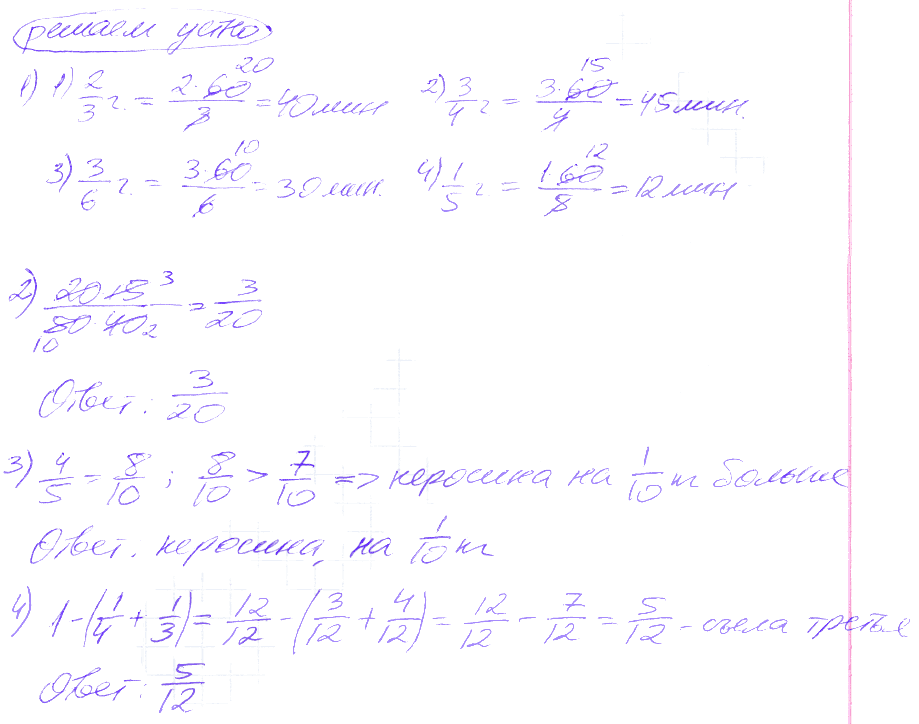 решаем устно
1) 1) 2/3 ч. = 2·60/3 = 40 мин 2) 3/4 ч = 3·60/4 = 45 мин.
3) 3/6 ч. = 3·60/6 = 30 мин. 4) 1/5 ч = 1·60/5 = 12 мин
2) = 3/20
Ответ: 3/20
3) 4/5 = 8/10 ; 8/10 > 7/10 => керосина на 1/10 кг больше
Ответ. керосина, на 1/10 кг
4) 1-(1/4 + 1/3) = 12/12 - (3/12 + 4/12) = 12/12 - 7/12 = 5/12 - съела третья
Ответ: 5/12